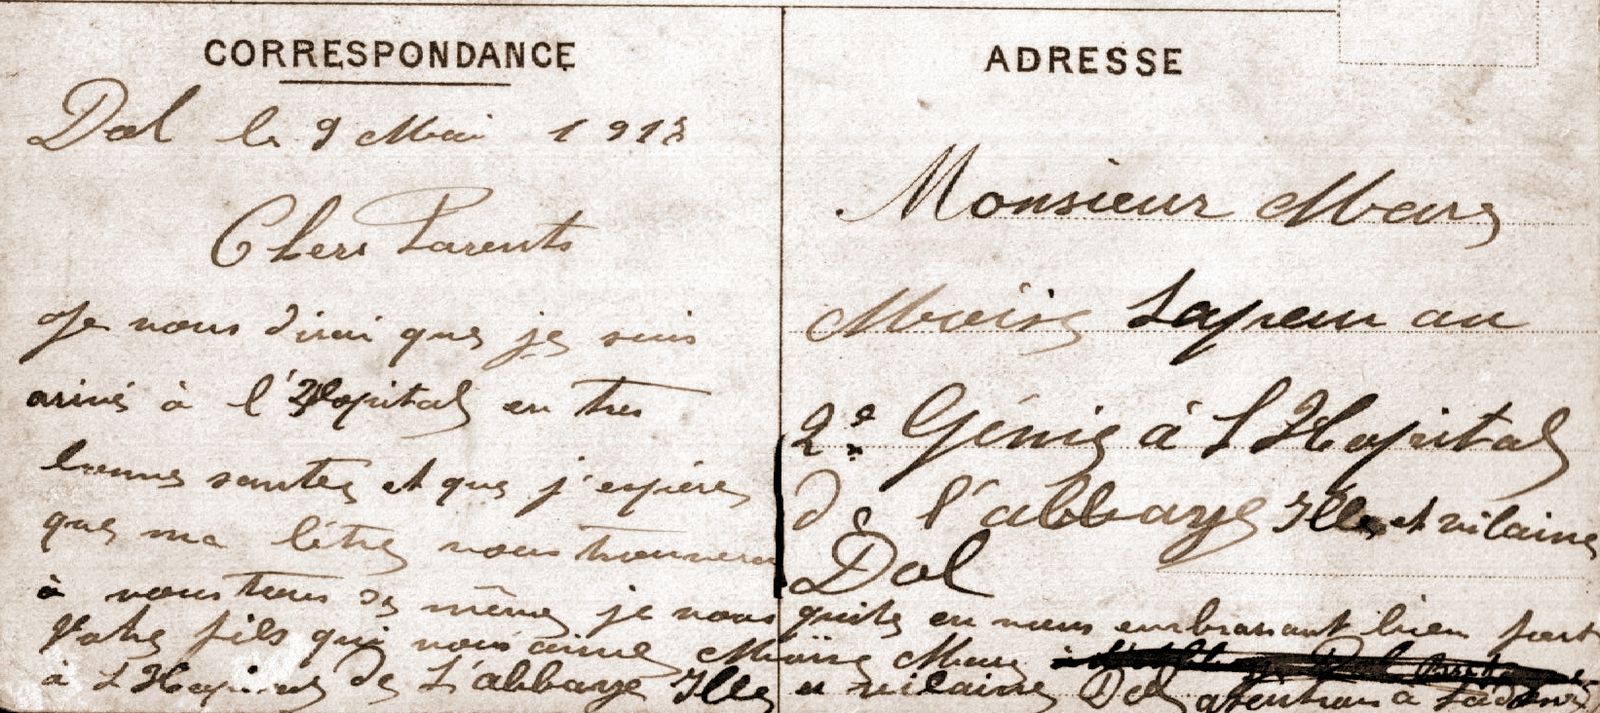 CORRESPONDANCE
Dol le 9 Mai 1918
Chers Parents
Je vous dirai que je suis
arivé à l'Hopital en tres
bonne santee et que j'espère
que ma lêtre vous trouvera
à vous tous de même je vous quite en vous embrassant bien fort
Votre fils qui vous aime Moïse Mary
à L'Hopital de L'abbaye Ille et vilaine Dol atention à L'adresse
ADRESSE
Monsieur Mary
Moïse Sapeur au
2e Génie à L'Hopital
de l'abbaye Ille et vilaine
Dol